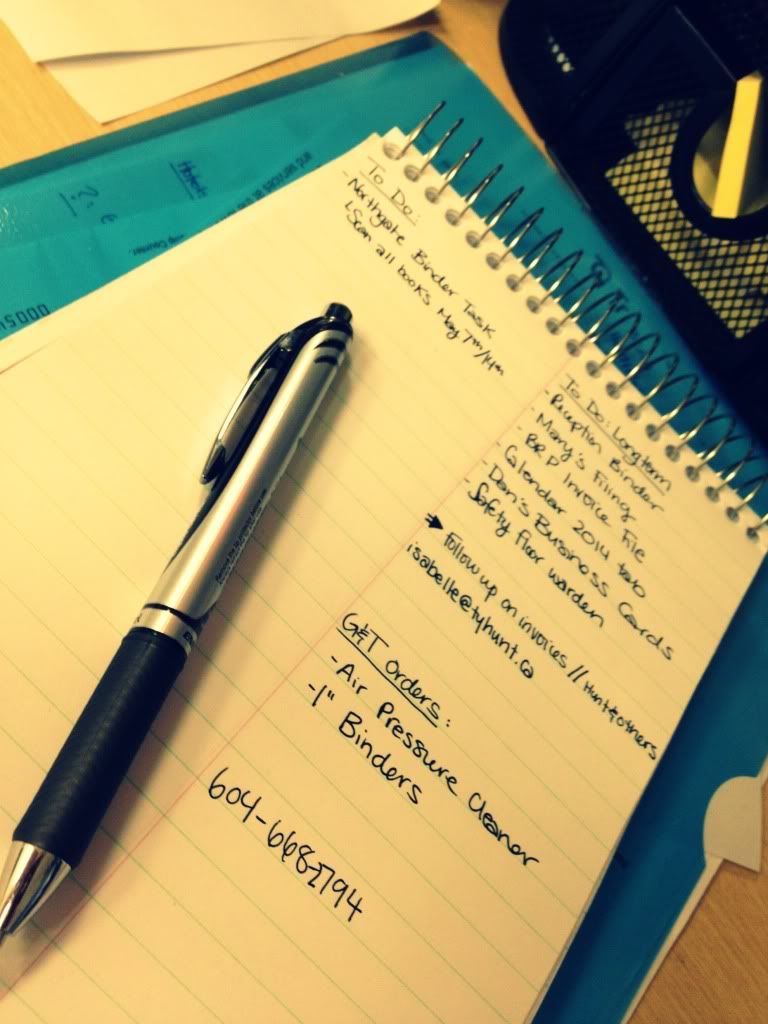 To Do:
-Northgate Binder Task
Scan all books May 7th/14th
To Do: Longterm
- Reception Binder
- Mary's Filing
- BRP Invoice File
- Calendar 2014 tab
- Dan's Business Cards
- Safety floor warden
Follow up on invoices // Hunt & others
isabelle@tyhunt.ca
G&T Orders:
-Air Pressure Cleaner
-1" Binders
604-668-1794